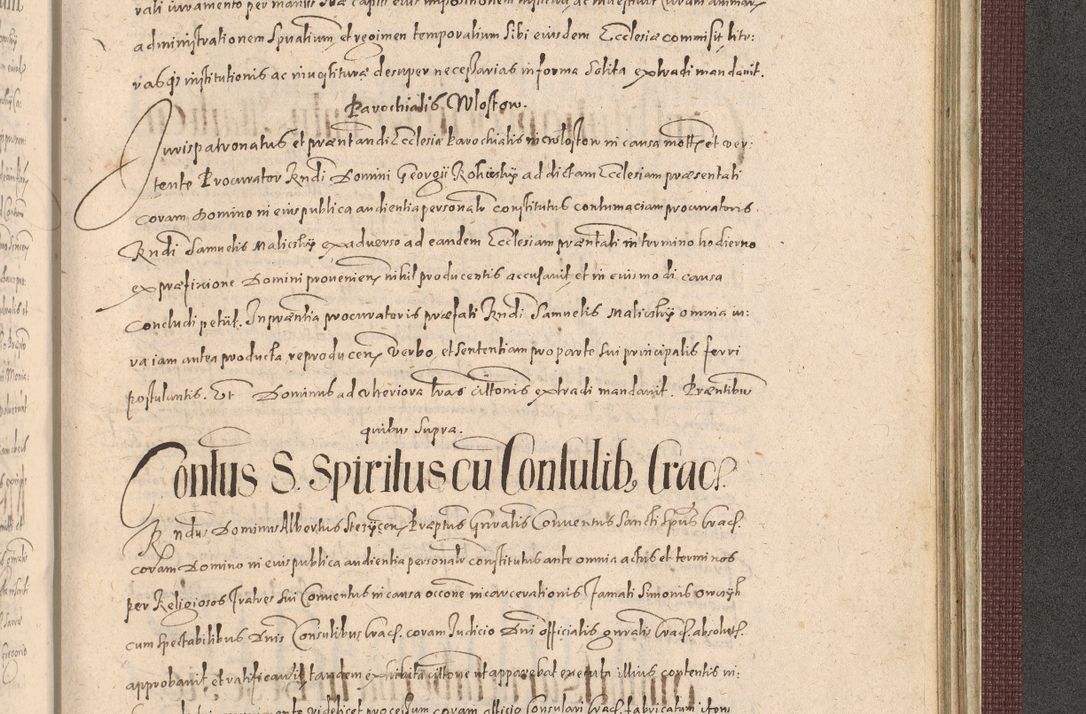 administrationem Spualium, et regimen temporalium Sibi eiusdem Ecclesiæ commisit litr:
rasq institutionis ac inuestituræ desuper necessarias in forma Solita extradi mandauit.
Parochialis Wlostow.
Jurispatronatus et præntandi Ecclesia Parochialis in Wlostow in causa mott et ver:
tente Procurator Rndi Domini Georgii ad dictam Ecclesiam præsentati
coram Domino in eius publica audientia personalr constitutus contumaciam procuratoris
Rndi Samuelis Maliczky ex aduerso ad eandem Ecclesiam præntati in termino hodierno
ex præfixione Domini prouenien nihil producentis accusauit et in eiusmodi causa
Concludi petiit. In præntia procuratoris præfati Rndi Samuelis Maliczky omnia iu:
ra iam antea producta reproducen Verbo, et sententiam pro parte sui principalis ferri
postulantis. Et Dominus ad vlteriora lras cittonis extradi mandauit. Præntibus
quibus supra.
Contus S. Spiritus cu Consulib, Crac.
Rndus Dominus Albertus Præptus Gnralis Conuentus Sancti Spus Crac.
coram Domino in eius publica audientia personalr constitutus ante omnia actus et terminos
per Religiosos fratres sui Conuentus in causa occone incarcerationis famati Simonis
cum Spectabilibus Dnis Consulibus Crac. coram Judicio Dni officialis gnralis Crac. absolut.
approbauit et ratificauit tandem exhibita cittone ut apparebat executa illius contentis in:
videlicet processum coram officio Consulari Crac. fabricatum